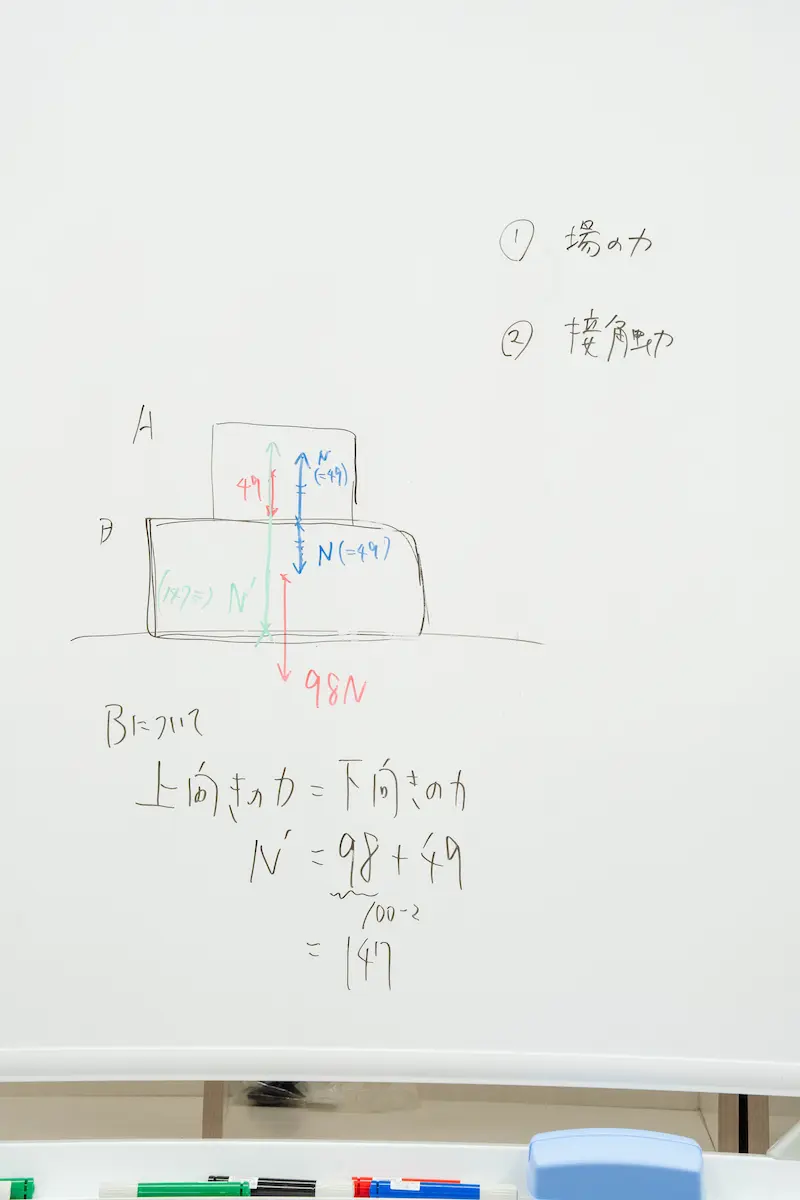 ① 場の力
② 接触力
A
N
(=49)
49
B
N(=49)
(147=) N'
98N
Bについて
上向きの力 = 下向きの力
N' = 98 + 49
100-2
= 147